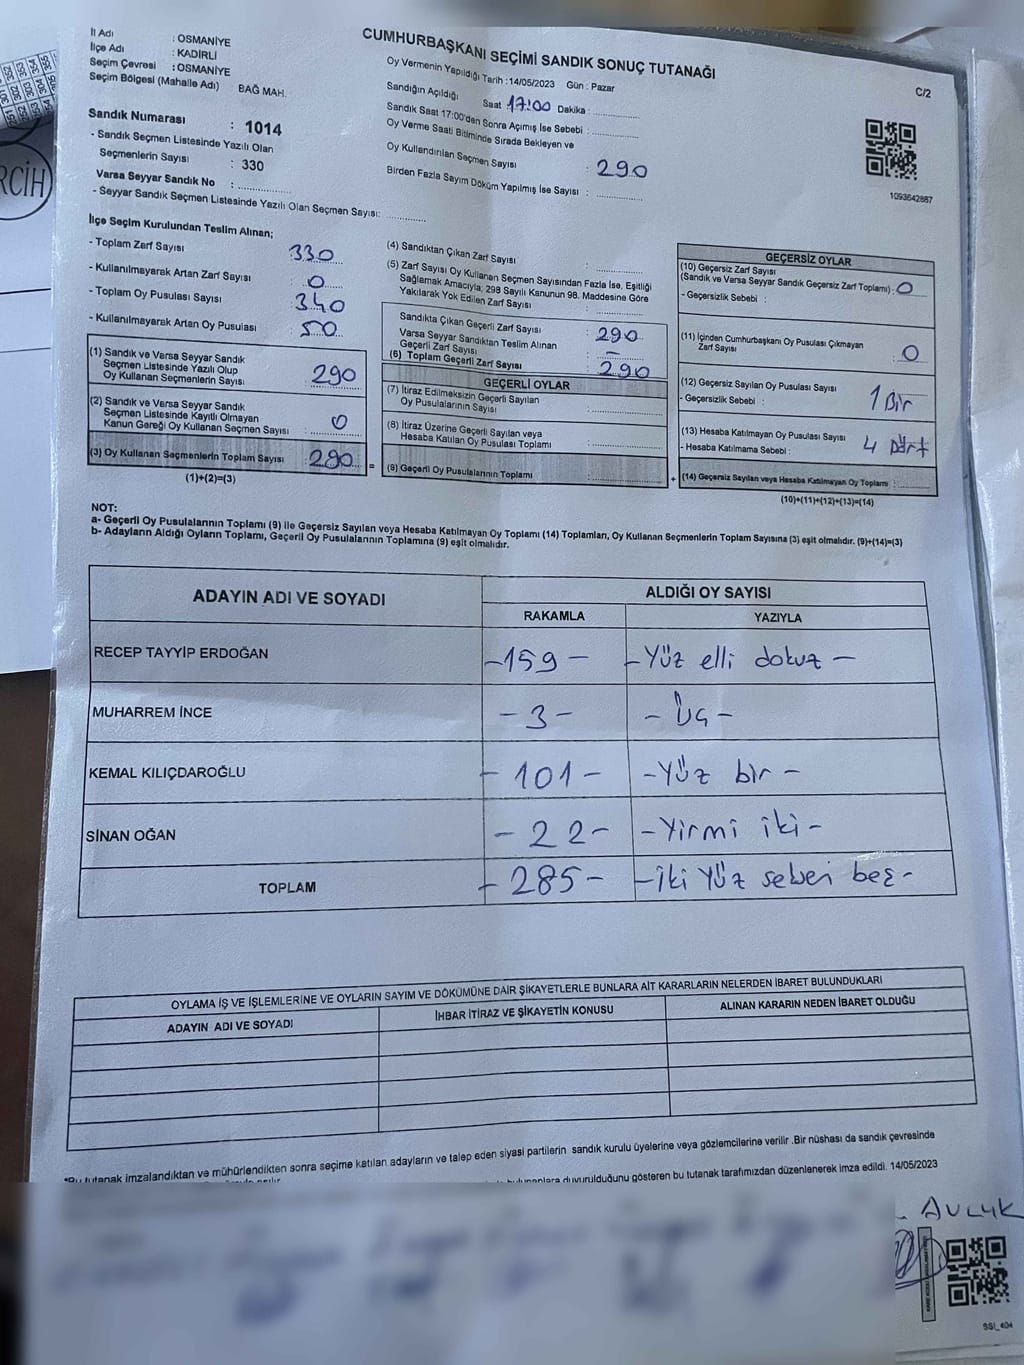 İl Adı : OSMANİYE
İlçe Adı : KADİRLİ
Seçim Çevresi : OSMANİYE
Seçim Bölgesi (Mahalle Adı) BAĞ MAH.
CUMHURBAŞKANI SEÇİMİ SANDIK SONUÇ TUTANAĞI
C/2
Oy Vermenin Yapıldığı Tarih : 14/05/2023 Gün : Pazar
Sandığın Açıldığı Saat 17:00 Dakika :
Sandık Saat 17:00'den Sonra Açımış İse Sebebi :
Oy Verme Saati Bitiminde Sırada Bekleyen ve
Oy Kullandırılan Seçmen Sayısı : 290
Birden Fazla Sayım Döküm Yapılmış İse Sayısı :
1093642887
Sandık Numarası : 1014
- Sandık Seçmen Listesinde Yazılı Olan
Seçmenlerin Sayısı : 330
Varsa Seyyar Sandık No :
- Seyyar Sandık Seçmen Listesinde Yazılı Olan Seçmen Sayısı:
İlçe Seçim Kurulundan Teslim Alınan;
- Toplam Zarf Sayısı 330
- Kullanılmayarak Artan Zarf Sayısı 0
- Toplam Oy Pusulası Sayısı 340
- Kullanılmayarak Artan Oy Pusulası 50
(1) Sandık ve Varsa Seyyar Sandık
Seçmen Listesinde Yazılı Olup
Oy Kullanan Seçmenlerin Sayısı 290
(2) Sandık ve Varsa Seyyar Sandık
Seçmen Listesinde Kayıtlı Olmayan
Kanun Gereği Oy Kullanan Seçmen Sayısı : 0
(3) Oy Kullanan Seçmenlerin Toplam Sayısı : 290 =
(1)+(2)=(3)
(4) Sandıktan Çıkan Zarf Sayısı :
(5) Zarf Sayısı Oy Kullanan Seçmen Sayısından Fazla İse, Eşitliği
Sağlamak Amacıyla; 298 Sayılı Kanunun 98. Maddesine Göre
Yakılarak Yok Edilen Zarf Sayısı :
Sandıkta Çıkan Geçerli Zarf Sayısı : 290
Varsa Seyyar Sandıktan Teslim Alınan
Geçerli Zarf Sayısı : –
(6) Toplam Geçerli Zarf Sayısı : 290
GEÇERLİ OYLAR
(7) İtiraz Edilmeksizin Geçerli Sayılan
Oy Pusulalarının Sayısı :
(8) İtiraz Üzerine Geçerli Sayılan veya
Hesaba Katılan Oy Pusulası Toplamı :
(9) Geçerli Oy Pusulalarının Toplamı : +
GEÇERSİZ OYLAR
(10) Geçersiz Zarf Sayısı
(Sandık ve Varsa Seyyar Sandık Geçersiz Zarf Toplamı) : 0
- Geçersizlik Sebebi :
(11) İçinden Cumhurbaşkanı Oy Pusulası Çıkmayan
Zarf Sayısı : 0
(12) Geçersiz Sayılan Oy Pusulası Sayısı : 1 Bir
- Geçersizlik Sebebi :
(13) Hesaba Katılmayan Oy Pusulası Sayısı : 4 Dört
- Hesaba Katılmama Sebebi :
(14) Geçersiz Sayılan veya Hesaba Katılmayan Oy Toplamı :
(10)+(11)+(12)+(13)=(14)
NOT:
a- Geçerli Oy Pusulalarının Toplamı (9) ile Geçersiz Sayılan veya Hesaba Katılmayan Oy Toplamı (14) Toplamları, Oy Kullanan Seçmenlerin Toplam Sayısına (3) eşit olmalıdır. (9)+(14)=(3)
b- Adayların Aldığı Oyların Toplamı, Geçerli Oy Pusulalarının Toplamına (9) eşit olmalıdır.
ADAYIN ADI VE SOYADI
ALDIĞI OY SAYISI
RAKAMLA YAZIYLA
RECEP TAYYİP ERDOĞAN -159- -Yüz elli dokuz-
MUHARREM İNCE -3- -Üç-
KEMAL KILIÇDAROĞLU -101- -Yüz bir-
SİNAN OĞAN -22- -Yirmi iki-
TOPLAM -285- -İki Yüz seksen beş-
OYLAMA İŞ VE İŞLEMLERİNE VE OYLARIN SAYIM VE DÖKÜMÜNE DAİR ŞİKAYETLERLE BUNLARA AİT KARARLARIN NELERDEN İBARET BULUNDUKLARI
ADAYIN ADI VE SOYADI İHBAR İTİRAZ VE ŞİKAYETİN KONUSU ALINAN KARARIN NEDEN İBARET OLDUĞU
*Bu tutanak imzalandıktan ve mühürlendikten sonra seçime katılan adayların ve talep eden siyasi partilerin sandık kurulu üyelerine veya gözlemcilerine verilir .Bir nüshası da sandık çevresinde
duyurulduğunu gösteren bu tutanak tarafımızdan düzenlenerek imza edildi. 14/05/2023
SSI_404